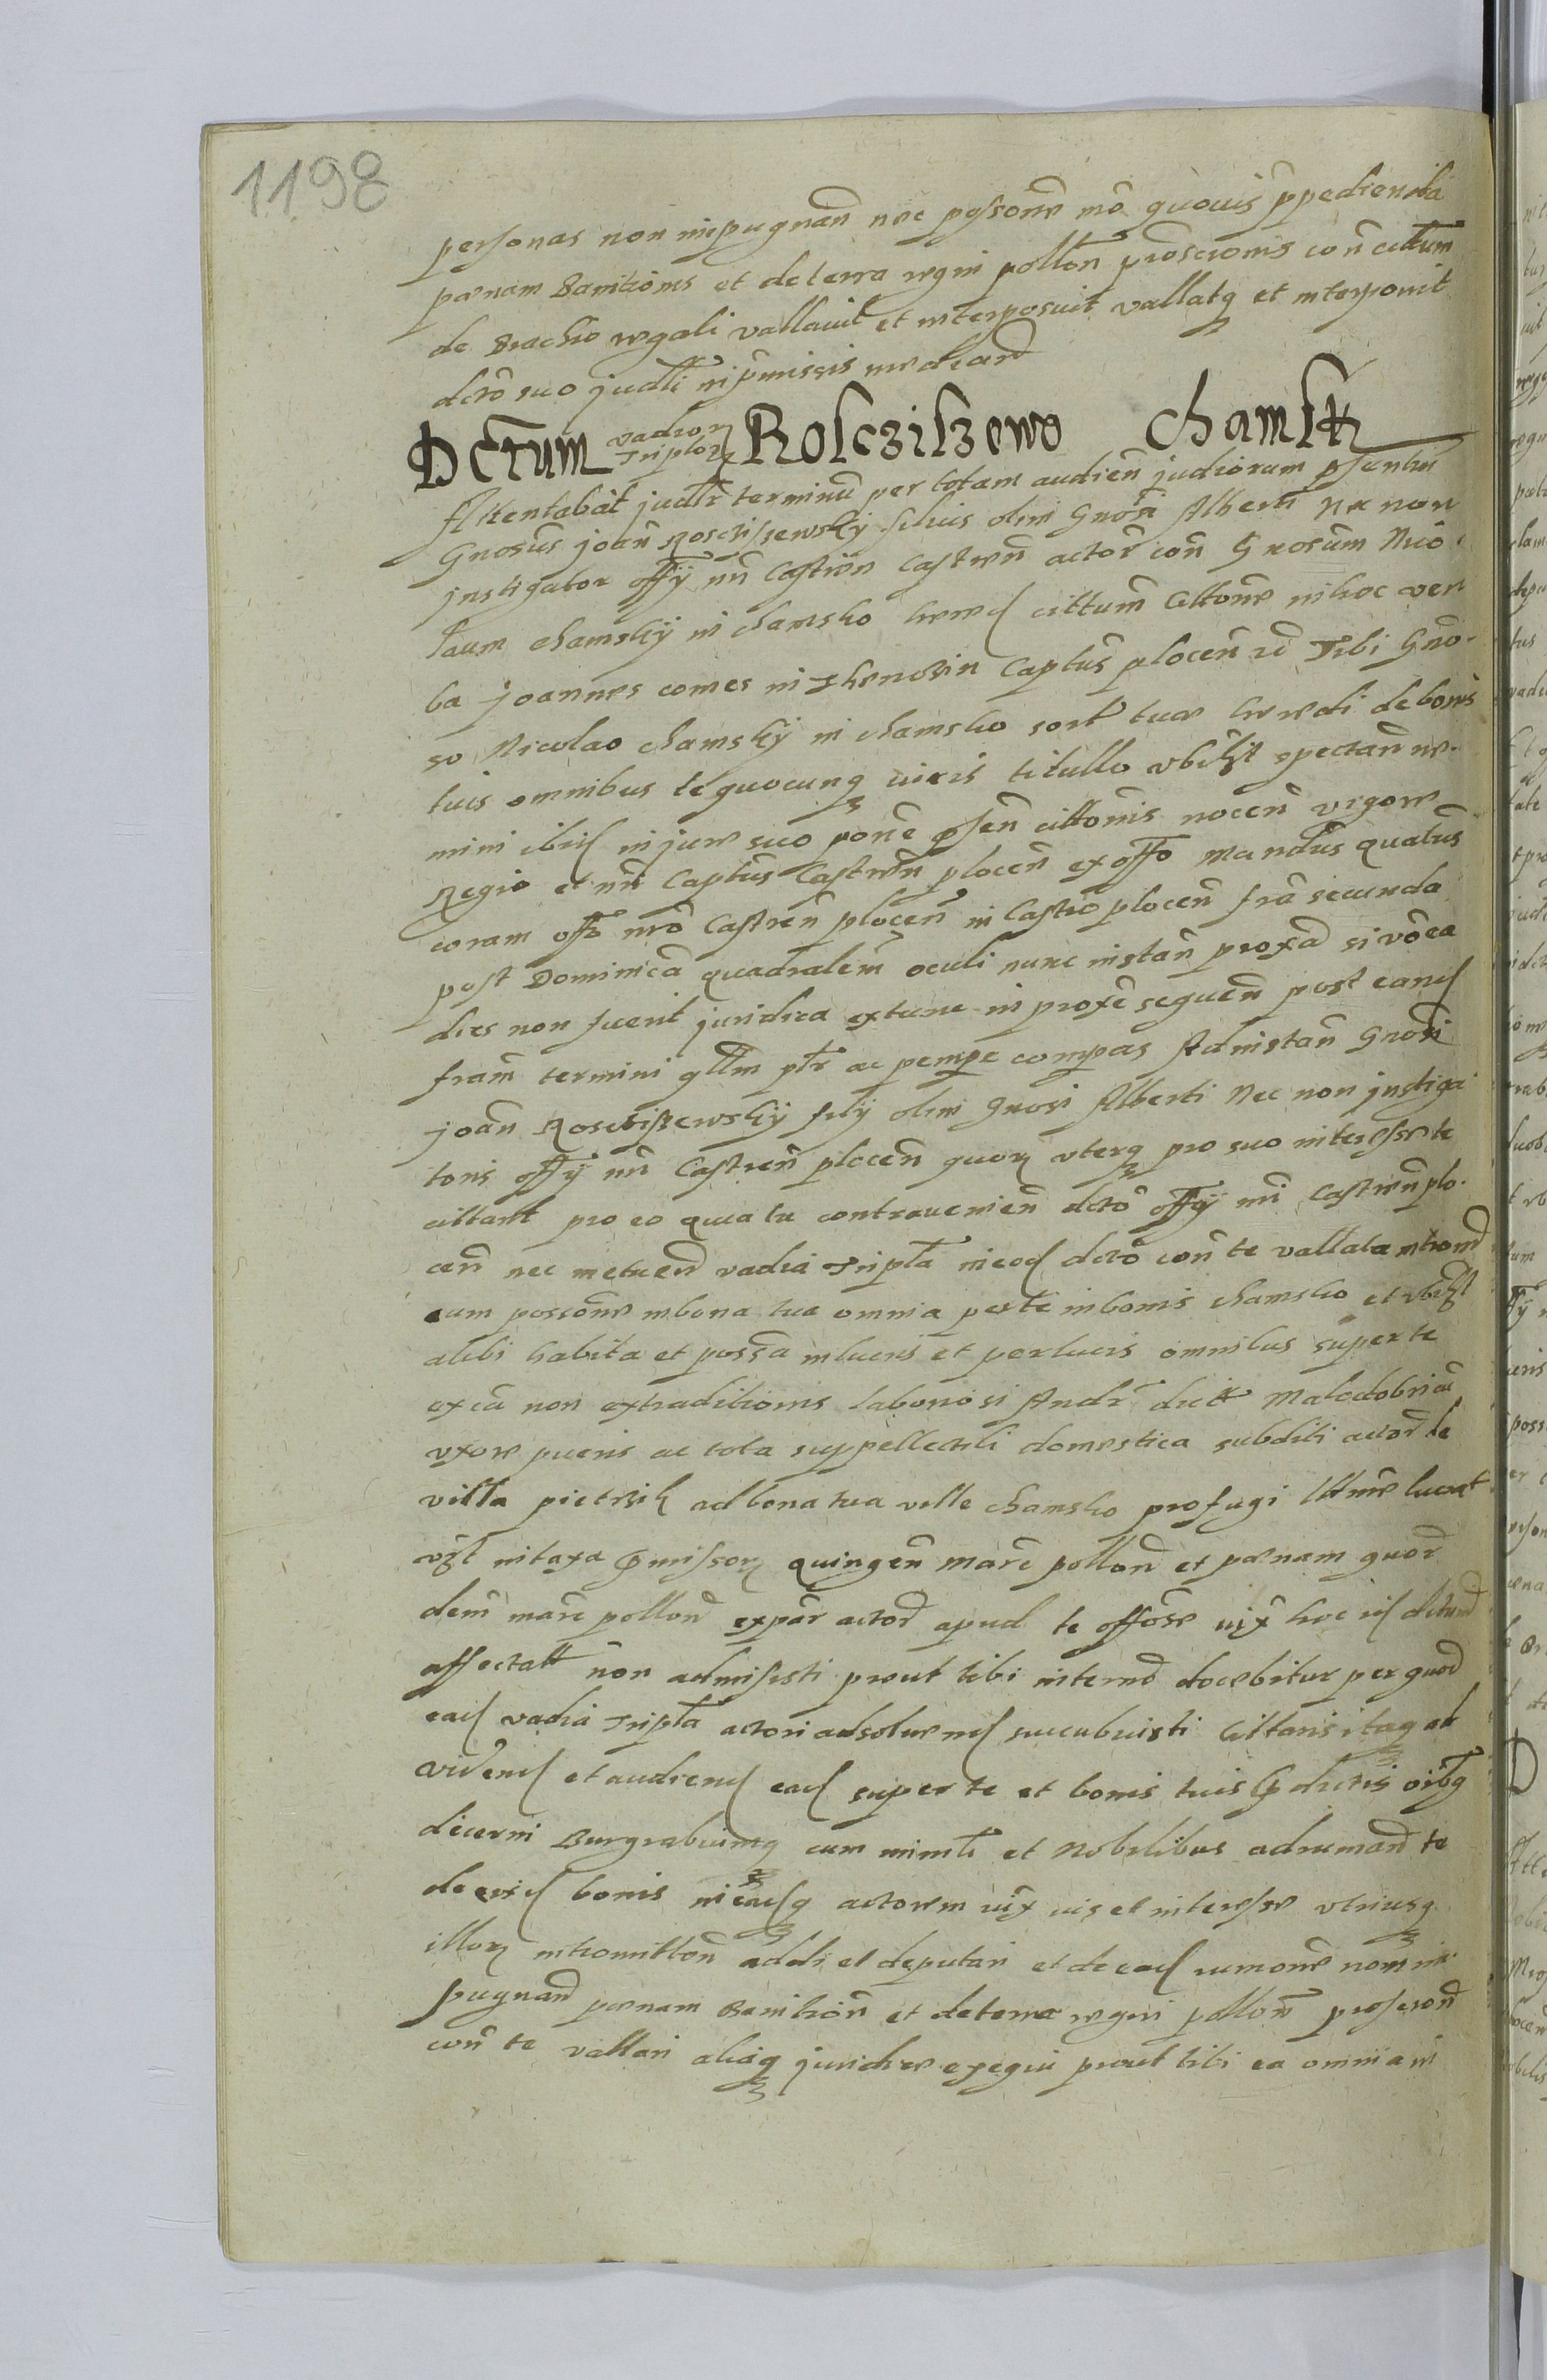 1198
personas non impugnan nec possone mo quovis ppedienda
pœnam Banitionis et de terra regni pollon proscrionis con cittum
de Brachio regali vallavit et interposuit vallatq et interponit
dcto suo judli in pmissis mediand
Dctum vadior triplor Roscziszewo Chamsk
Attentabat judlr terminu per totam audien judiorum psentiu
Gnosus joan Rosczissewskij filius olim Gnosi Alberti Nec non
jnstigator offij nri Castren Castren actor con Gnosum Nico
laum chamskij in chamsko hered cittum Citone in hoc ver
ba joannes comes in Thenczin Captus plocen rc Tibi Gno
so Nicolao chamskij in chamsko sort tuæ heredi de bonis
tuis omnibus te quocunq iuris titullo ubilzt spectan no
mini ibid in jure suo pone psen cittonis nocen vigore
Regio et nri Captus Castren plocen ex offo Mandus quatus
coram offo nro Castren plocen in Castro plocen fra secunda
post Dominica quadralem oculi nunc instan proxa si vo ea
dies non fuerit juridica extunc in proxe sequen post eand
fram termini gllm ptr ac pempe compas Ad instan Gnosi
joan Rosczissewskij filij olim Gnosi Alberti Nec non jnstiga
toris offij nri Castren plocen quor uterq pro suo interesse te
cittant pro eo quia tu contravenien dcto offij nri Castren plo
cen nec metuen vadia tripla in eod dcto con te vallata intromd
eum possone in bona tua omnia perte in bonis chamsko et ubilzt
alibi habita et possa in lucris et perlucris omnibus super te
ex ca non extraditionis laboriosi Andr dict Malodobri cu
uxore pueris ac tota suppellectili domestica subditi actor de
villa pietrzik ad bona tua ville chamsko profugi lltme lucrat
vzt in taxa pmissor quingen marc pollon et pœnam quor
dem marc pollon ex par actor apud te offose iux hoc id dctum
affectatt non admisisti prout tibi in termo docebitur per quod
ead vadia tripla actori adsolvend succubuisti Cittaris itaq ad
vidend et audiend ead super te et bonis tuis pdictis oibq
decerni Burgrabiumq cum minrli et Nobilibus ad rumand te
de eisd bonis in eadq actorem iux ius et interesse utriusq
illor intromitten addi et deputari et de ead rumone non im
pugnand pœnam Banition et de terra regni pollon proscron
con te vallari aliaq juridice exequi prout tibi ea omnia in